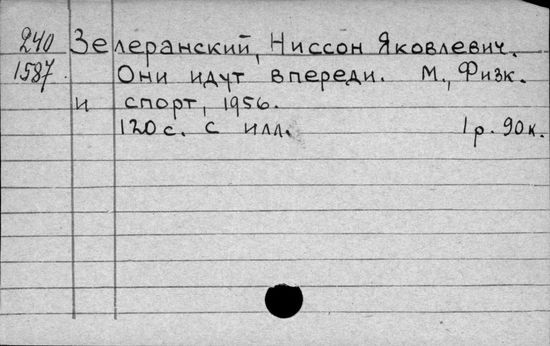 240 Зелеранский, Ниссон Яковлевич.
1587. Они идут впереди. М., Физк.
и спорт, 1956.
120 с. с илл. 1 р. 90 к.